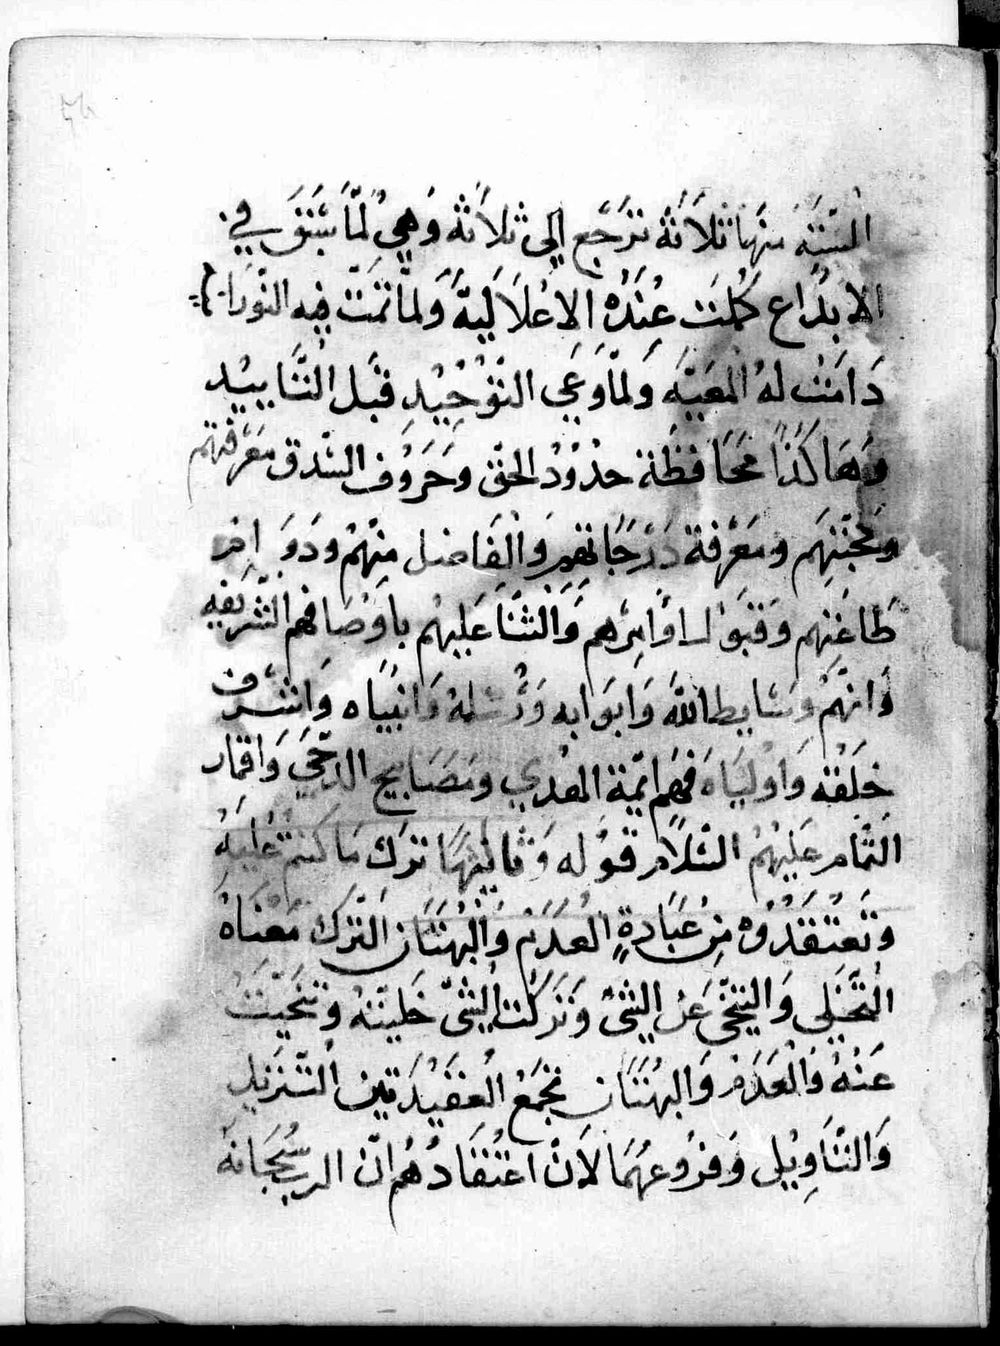 الستة منها ثلاثة ترجع الي ثلاثة وهي لما سبق في
الابداع كملت عنده الاعلالية ولما تمت فيه النورا
دامت له المعية ولما وعي التوحيد قبل التاييد
وهاكذا محافظة حدود الحق وحروف السدق معرفتهم
ومحبتهم ومعرفة درجاتهم والفاضل منهم ودوام
طاعتهم وقبول اوامرهم والثنا عليهم باوصافهم الشريفه
وانهم وسايط الله وابوابه ورسله وانبياه واشرف
خلقه واولياه فهم ايمة الهدي ومصابيح الدجي واقمار
التمام عليهم السلام قوله وثالثها ترك ما كنتم عليه
وتعتقدوه من عبادة العدم والبهتان الترك معناه
التخلي والتنحي عن الشي وتركت الشي خليته وتنحيت
عنه والعدم والبهتان تجمع العقيدتين التنزيل
والتاويل وفروعهما لان اعتقادهم ان الرب سبحانه